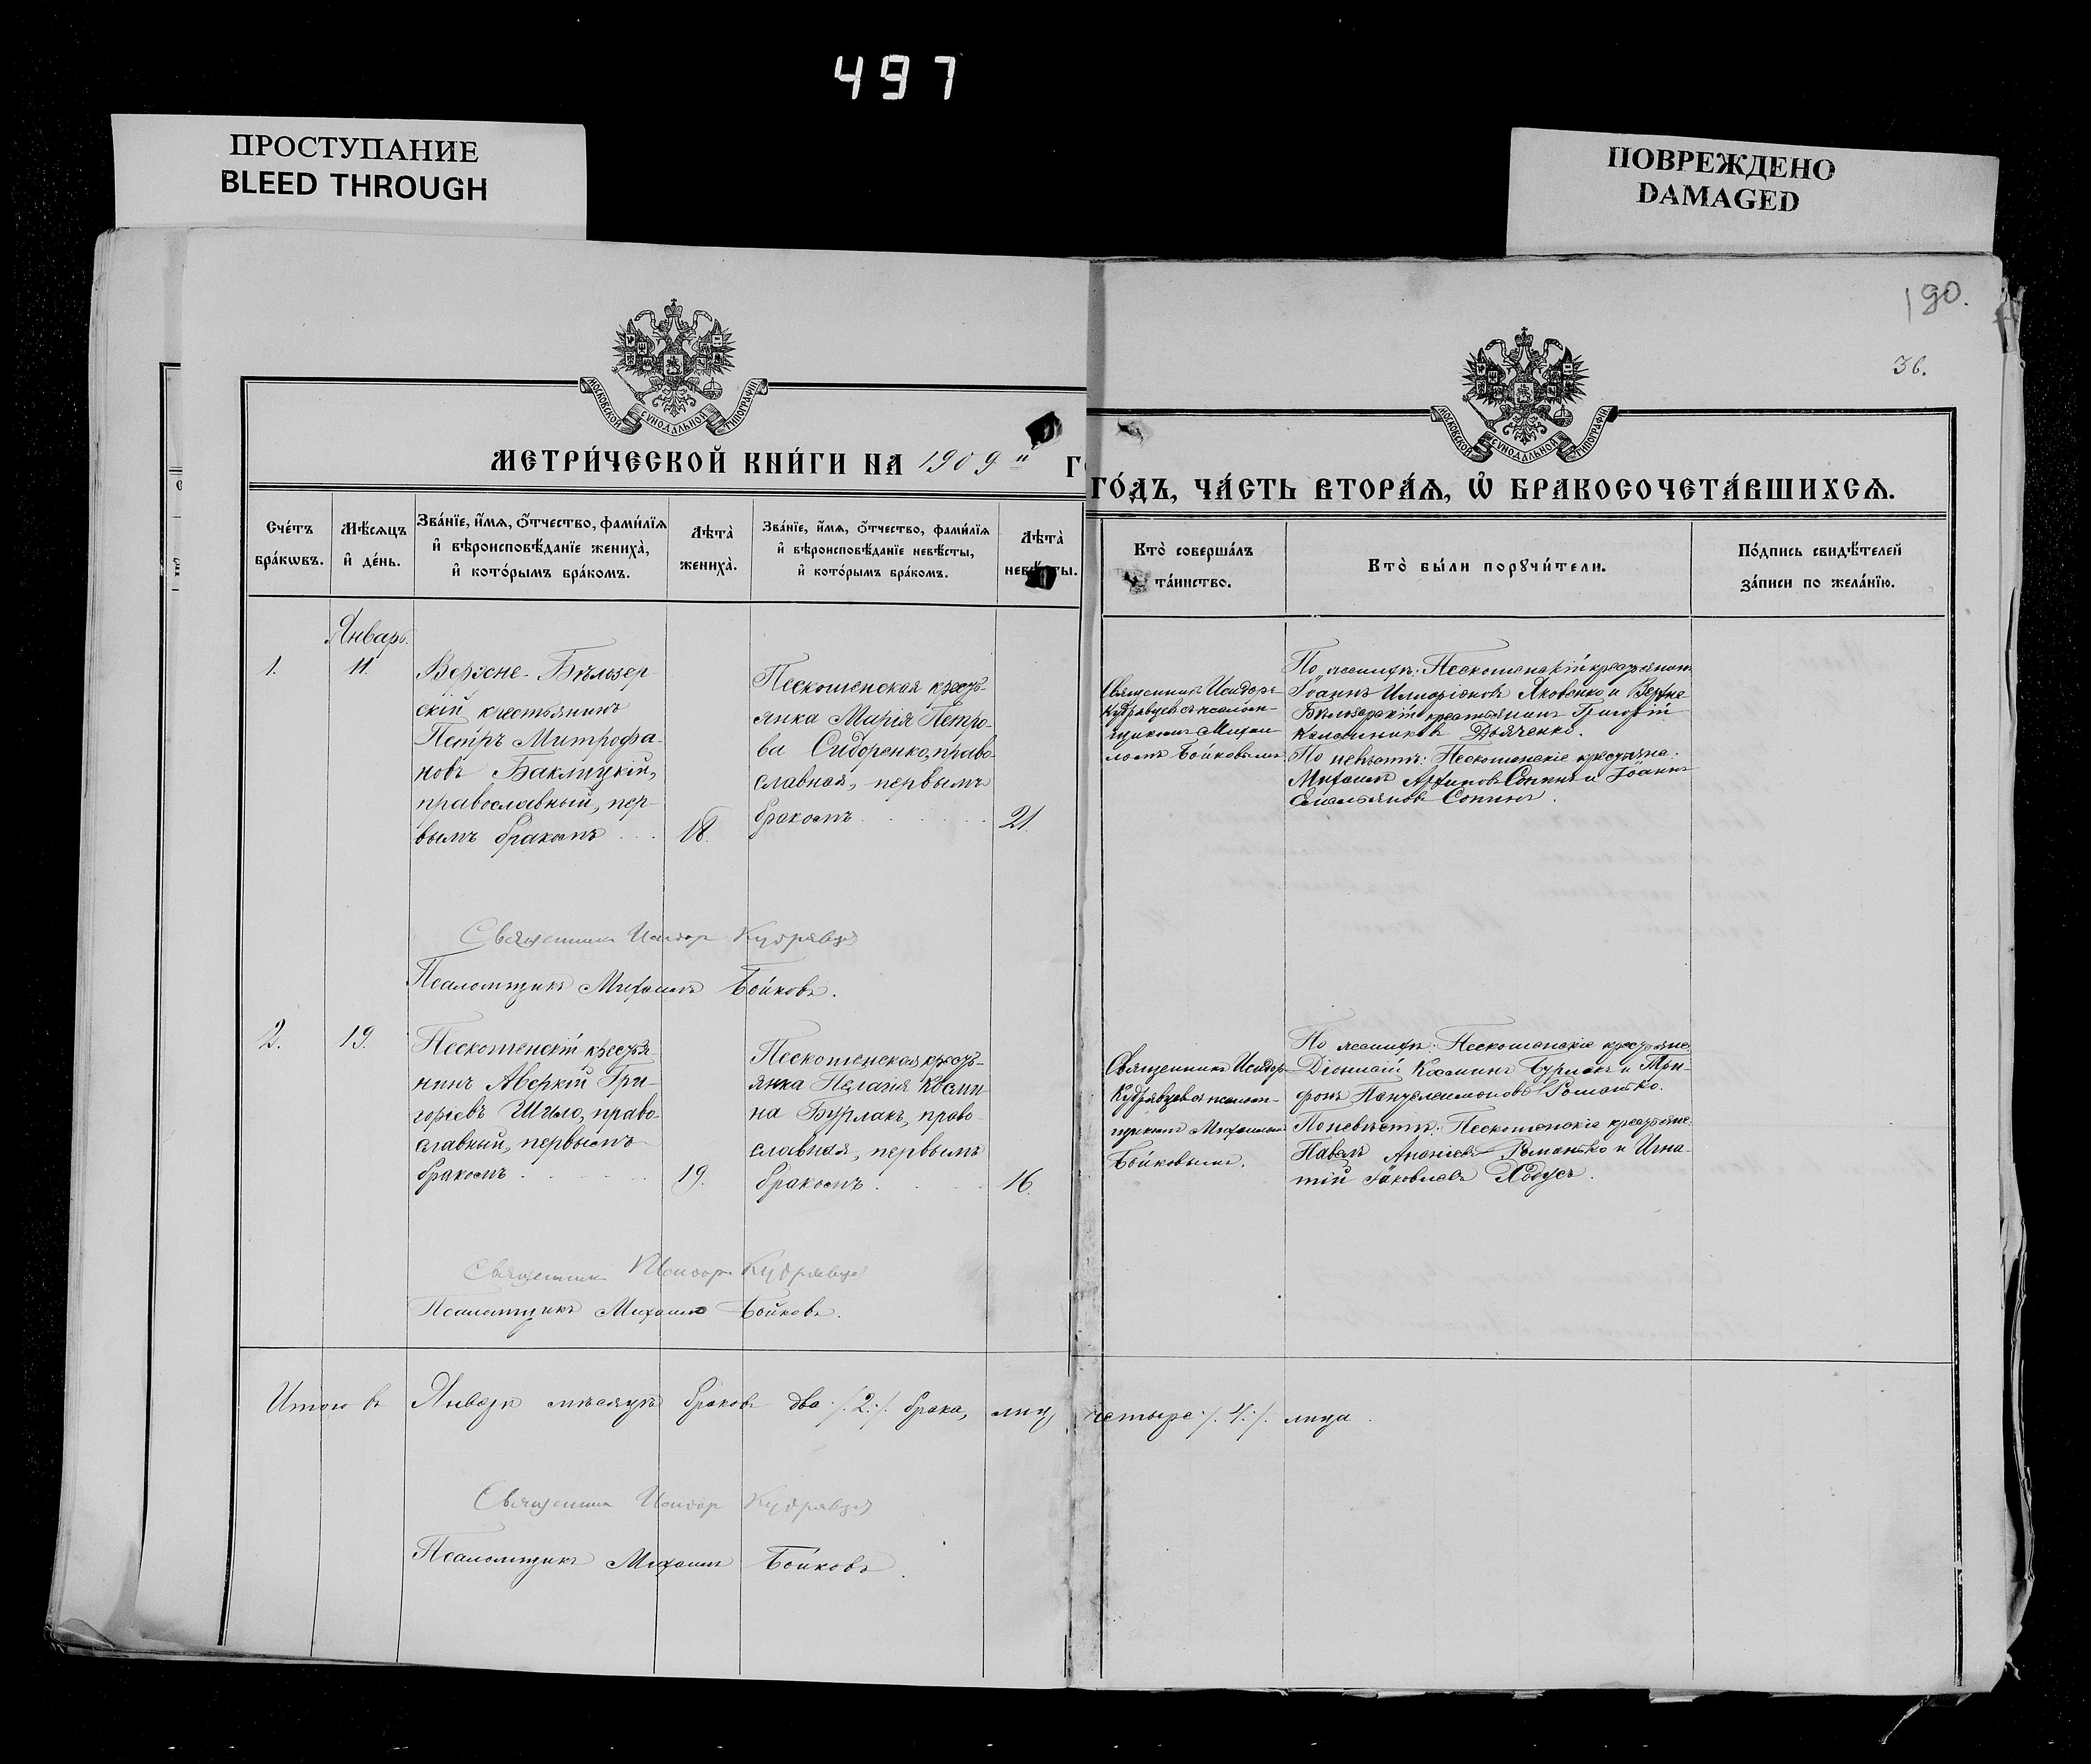 497
ПРОСТУПАНИЕ
BLEED THROUGH
ПОВРЕЖДЕНО
DAMAGED
190.
36.
МОСКОВСКОЙ СѴНОДАЛЬНОЙ ТИПОГРАФІИ
МОСКОВСКОЙ СѴНОДАЛЬНОЙ ТИПОГРАФІИ
МЕТРИ́ЧЕСКОЙ КНИ́ГИ НА 1909 й
ГО́ДЪ, ЧА́СТЬ ВТОРА́Ѧ, Ѽ БРАКОСОЧЕТА́ВШИХСѦ.
Сче́тъ
бра́кѡвъ.
Мѣ́сѧцъ
и҆ де́нь.
Зва́нїе, и҆́мѧ, ѻ҆́тчество, фами́лїѧ
и҆ вѣроисповѣ́данїе жениха̀,
и҆ кото́рымъ бра́комъ.
Лѣта̀
жениха̀.
Зва́нїе, и҆́мѧ, ѻ҆́тчество, фами́лїѧ
и҆ вѣроисповѣ́данїе невѣ́сты,
и҆ кото́рымъ бра́комъ.
Лѣта̀
невѣ́сты.
Кто̀ соверша́лъ
та́инство.
Кто̀ бы́ли порꙋчи́тели.
По́дпись свидѣ́телей
за́писи по жела́нїю.
Январь.
1.
11.
Верхне-Бѣлозер
скій крестьянинъ
Петръ Митрофа-
новъ Баклицкій,
православный, пер-
вымъ бракомъ
18.
Пескошенская кресть-
янка Марія Петро-
ва Сидоренко, право-
славная, первымъ
бракомъ
21.
Священникъ Исидоръ
Кудрявцевъ съ псалом-
щикомъ Михаи
ломъ Бойковымъ
По женихѣ: Пескошенскій крестьянинъ
Іоаннъ Илларіоновъ Яковенко и Верхне
Бѣлозерскій крестьянинъ Григорій
Дьяченко.
По невѣстѣ: Пескошенскіе крестьяне:
Михаилъ Архиповъ Сопинъ и Іоаннъ
Емельяновъ Сопинъ.
Священникъ Исидор Кудрявцев
Псаломщикъ Михаилъ Бойковъ.
2.
19.
Пескошенскій крестья-
нинъ Аверкій Гри-
горьевъ Шило, право-
славный, первымъ
бракомъ
19.
Пескошенская кресть-
янка Пелагія Косми
на Бурлакъ, право-
славная, первымъ
бракомъ
16.
Священникъ Исидоръ
Кудрявцевъ съ псалом-
щикомъ Михаиломъ
Бойковымъ.
По женихѣ: Пескошенскіе крестьяне
Діонисій Косминъ Бурлакъ и Три-
фонъ Пантелеимоновъ Романько.
По невѣстѣ: Пескошенскіе крестьяне:
Павелъ Ананіевъ Романько и Игна-
тій Іаковлевъ Ходусъ.
Священникъ Исидоръ Кудрявцев
Псаломщикъ Михаилъ Бойковъ.
Итого въ Январѣ мѣсяцѣ браковъ два ./. 2 ./. брака, лицъ четыре ./. 4 ./. лица.
Священникъ Исидор Кудрявцев
Псаломщикъ Михаилъ Бойковъ.